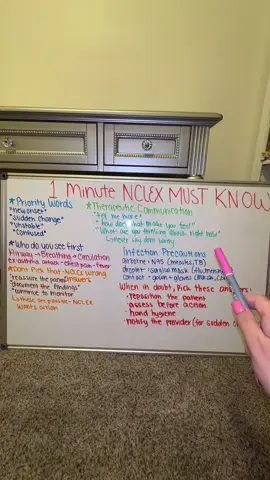 1 Minute NCLEX MUST KNOW
*Priority Words
"new onset"
"sudden change"
"unstable"
"confused"
*Who do you see first
Airway → Breathing → Circulation
ex: asthma attack → chest pain → fever
*Don't Pick that - NCLEX Wrong Answers
"reassure the patient"
"document the findings"
"continue to monitor"
↳ these are passive - NCLEX
wants action
*Therapeutic Communication
"tell me more"
"how does that make you feel"
"What are you thinking about right now"
↳ never say dont worry
Infection Precautions
airborne → N95 (measles, TB)
droplet → surgical mask (flu, mening
contact → gown + gloves (MRSA, C
When in doubt, pick these answers:
• reposition the patient
• assess before action
• hand hygiene
• notify the provider (for sudden c